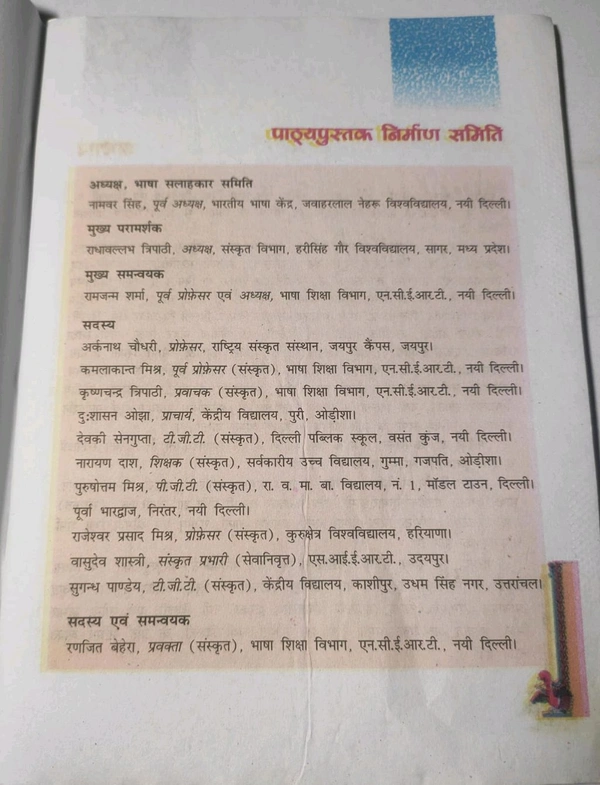 पाठ्यपुस्तक निर्माण समिति
अध्यक्ष, भाषा सलाहकार समिति
नामवर सिंह, पूर्व अध्यक्ष, भारतीय भाषा केंद्र, जवाहरलाल नेहरू विश्वविद्यालय, नयी दिल्ली।
मुख्य परामर्शक
राधावल्लभ त्रिपाठी, अध्यक्ष, संस्कृत विभाग, हरीसिंह गौर विश्वविद्यालय, सागर, मध्य प्रदेश।
मुख्य समन्वयक
रामजन्म शर्मा, पूर्व प्रोफ़ेसर एवं अध्यक्ष, भाषा शिक्षा विभाग, एन.सी.ई.आर.टी., नयी दिल्ली।
सदस्य
अर्कनाथ चौधरी, प्रोफ़ेसर, राष्ट्रिय संस्कृत संस्थान, जयपुर कैंपस, जयपुर।
कमलाकान्त मिश्र, पूर्व प्रोफ़ेसर (संस्कृत), भाषा शिक्षा विभाग, एन.सी.ई.आर.टी., नयी दिल्ली।
कृष्णचन्द्र त्रिपाठी, प्रवाचक (संस्कृत), भाषा शिक्षा विभाग, एन.सी.ई.आर.टी., नयी दिल्ली।
दु:शासन ओझा, प्राचार्य, केंद्रीय विद्यालय, पुरी, ओड़ीशा।
देवकी सेनगुप्ता, टी.जी.टी. (संस्कृत), दिल्ली पब्लिक स्कूल, वसंत कुंज, नयी दिल्ली।
नारायण दाश, शिक्षक (संस्कृत), सर्वकारीय उच्च विद्यालय, गुम्मा, गजपति, ओड़ीशा।
पुरुषोत्तम मिश्र, पी.जी.टी. (संस्कृत), रा. व. मा. बा. विद्यालय, नं. 1, मॉडल टाउन, दिल्ली।
पूर्वा भारद्वाज, निरंतर, नयी दिल्ली।
राजेश्वर प्रसाद मिश्र, प्रोफ़ेसर (संस्कृत), कुरुक्षेत्र विश्वविद्यालय, हरियाणा।
वासुदेव शास्त्री, संस्कृत प्रभारी (सेवानिवृत्त), एस.आई.ई.आर.टी., उदयपुर।
सुगन्ध पाण्डेय, टी.जी.टी. (संस्कृत), केंद्रीय विद्यालय, काशीपुर, उधम सिंह नगर, उत्तरांचल।
सदस्य एवं समन्वयक
रणजित बेहेरा, प्रवक्ता (संस्कृत), भाषा शिक्षा विभाग, एन.सी.ई.आर.टी., नयी दिल्ली।